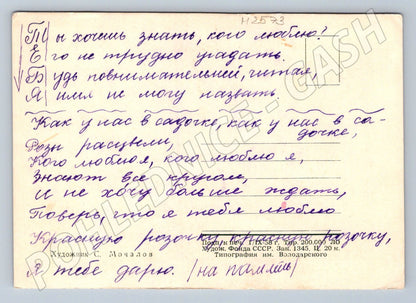 М2573
Ты хочешь знать, кого люблю?
Его не трудно угадать.
Будь повнимательней, читая,
Я имя не могу назвать
Как у нас в садочке, как у нас в са-
дочке,
Розы расцвели,
Кого люблю я, кого люблю я,
Знают все кругом,
И не хочу больше ждать,
Поверь, что я тебя люблю
Красную розочку, красную розочку,
Я тебе дарю. (на память)
Художник С. Мочалов
Подп. к печ. 1/IX-56 г. Тир. 200.000
Худож. Фонда СССР. Зак. 1345. Ц. 20 к.
Типография им. Володарского
POHLEDNICE - GASH